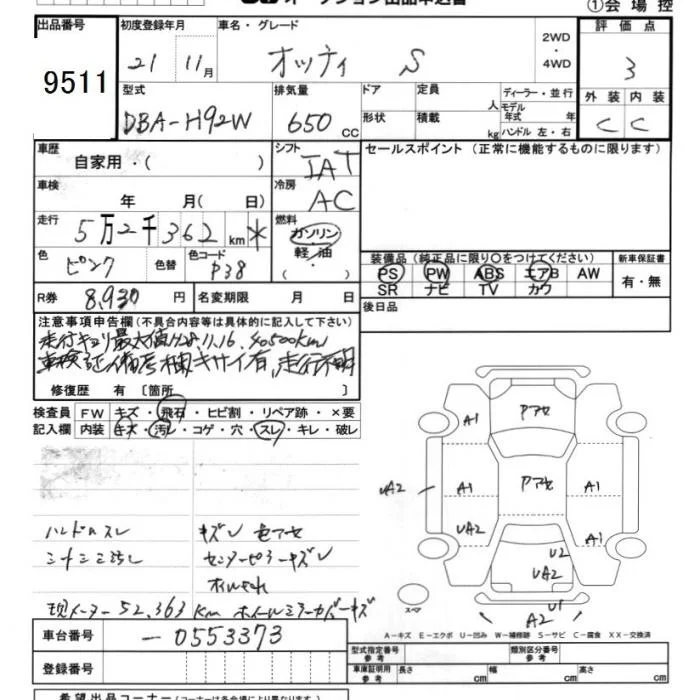 オークション出品申込書 ①会場控
出品番号 初度登録年月 車名・グレード 2WD・4WD 評価点
9511 21 11月 オッティ S 3
型式 排気量 ドア 定員 人 ディーラー・並行 外装 内装
DBA-H92W 650cc 形状 積載 kg モデル年式 年 ハンドル 左・右 C C
車歴 シフト セールスポイント (正常に機能するものに限ります)
自家用・( ) IAT
車検 年 月(日) 冷房 AC
走行 5万2千362km * 燃料 ガソリン
色 ピンク 色替 色コード P38 軽油
( ・ )
装備品(純正品に限り○をつけてください) 新車保証書
PS PW ABS エアB AW 有・無
SR ナビ TV カワ
R券 8,930円 名変期限 月 日
後日品
注意事項申告欄(不具合内容等は具体的に記入して下さい)
走行キョリ最大値H28.11.16. 40500km
キサイ有,走行不明
修復歴 有 〔箇所 〕
検査員記入欄 FW キズ・飛石・ヒビ割・リペア跡・×要
内装 キズ・汚レ・コゲ・穴・スレ・キレ・破レ
ハンドルスレ
シートシミ汚レ
センターピラーキズ
現メーター52,363km
A1 Pアセ
UA2 A1 Pアセ A1
UA2 A1
U2
UA2
スペア U1
A2
A-キズ E-エクボ U-凹み W-補修跡 S-サビ C-腐食 XX-交換済
車台番号 -0553373
型式指定番号 参考 類別区分番号 参考
登録番号 車庫証明用 参考 長さ cm 幅 cm 高さ cm
希望出品コーナー(コーナーは各会場により異なります)